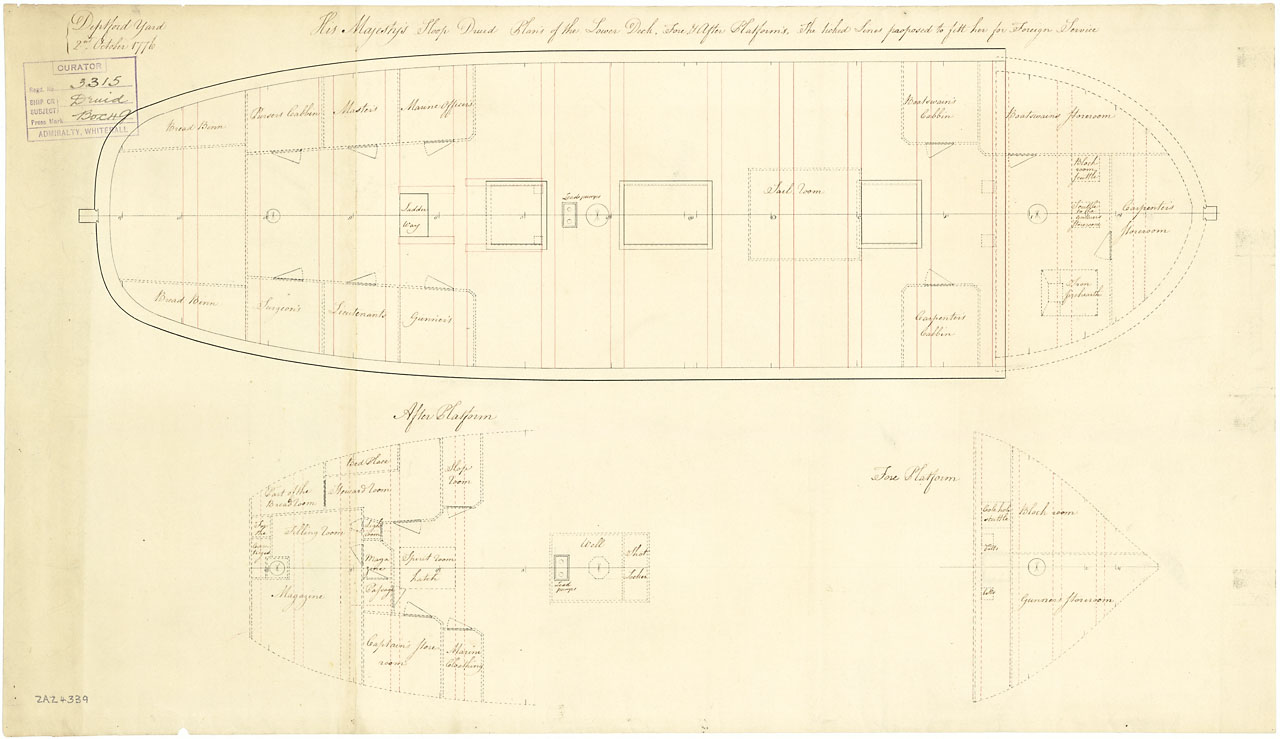 Deptford Yard
2nd October 1776
His Majesty's Sloop Druid Plans of the Lower Deck, Fore & After Platforms. The ticked Lines proposed to fitt her for Foreign Service
CURATOR
Regd. No. 3315
SHIP OR SUBJECT Druid
Press Mark Box 49
ADMIRALTY, WHITEHALL
Bread Binn
Pursers Cabbin
Masters
Marine Officers
Boatswain's
Cabbin
Boatswains Storeroom
Block
room
scuttle
Ladder
Way
Leadpumps
Sail room
Scuttle
to the
gunners
storeroom
Carpenters
storeroom
Bread Binn
Surgeon's
Lieutenants
Gunner's
Carpenters
Cabbin
Iron
firehearth
After Platform
Bed Place
Part of the
Bread room
Steward Room
Slop
room
Filling room
Light
room
Maga
zine
Passage
Spirit room
hatch
Magazine
Captain's Store
room
Marine
Cloathing
Well
Lead
pumps
Shot
Locker
Fore Platform
Cole hole
scuttle
Block room
bitts
bitts
Gunners Storeroom
ZAZ4339